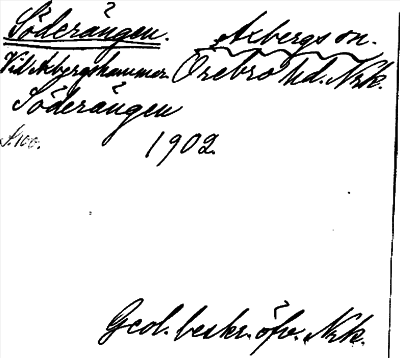 Söderängen. Axbergs sn.
Vid Axbergshammer. Örebro hd. Nrk.
Söderängen
S. 100. 1902.
Geol. beskr. öfv. Nrk.